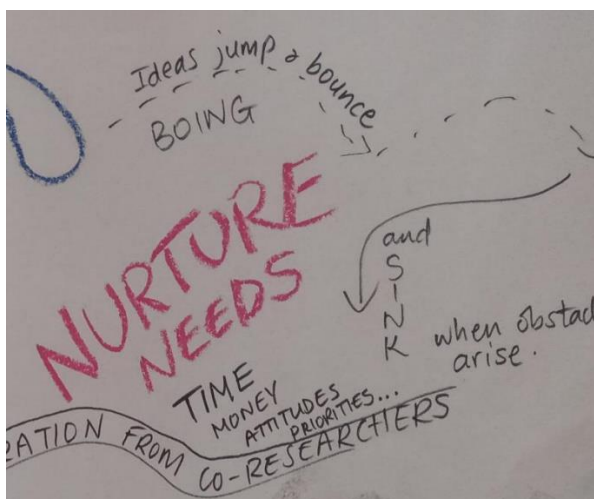 Ideas jump & bounce
BOING
NURTURE
NEEDS
and
SINK
when obstac
arise.
TIME
MONEY
ATTITUDES
PRIORITIES...
RATION FROM CO-RESEARCHERS